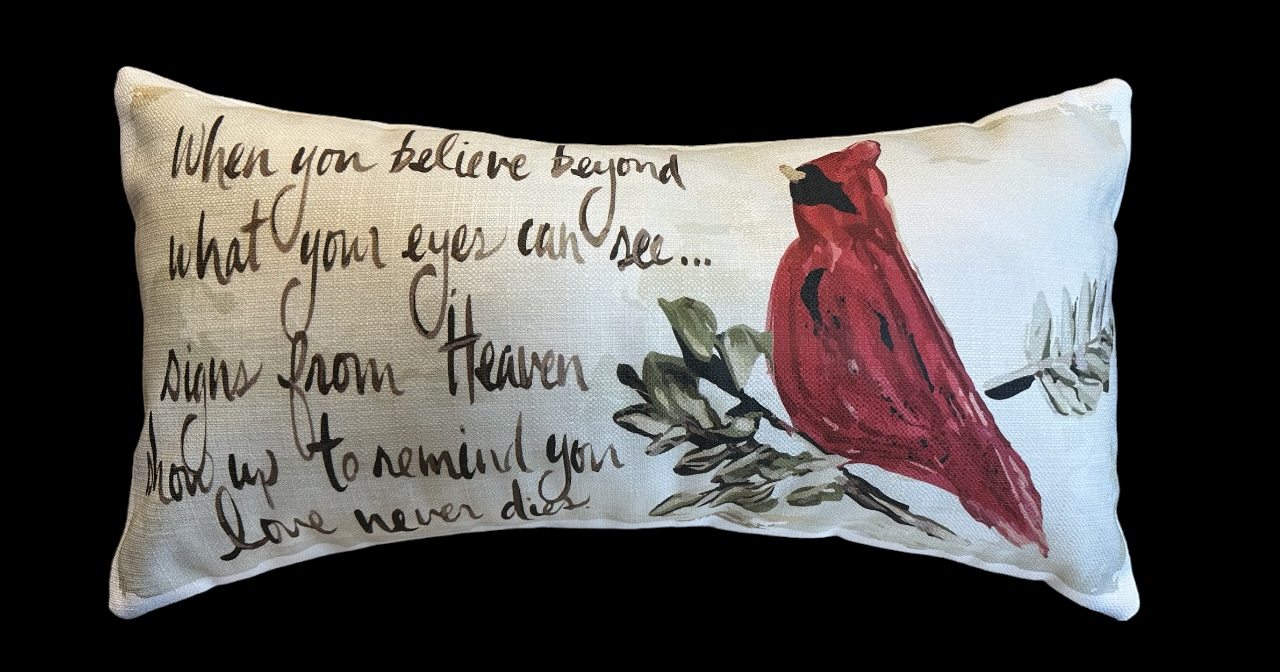 When you believe beyond
what your eyes can see...
signs from Heaven
show up to remind you
love never dies.